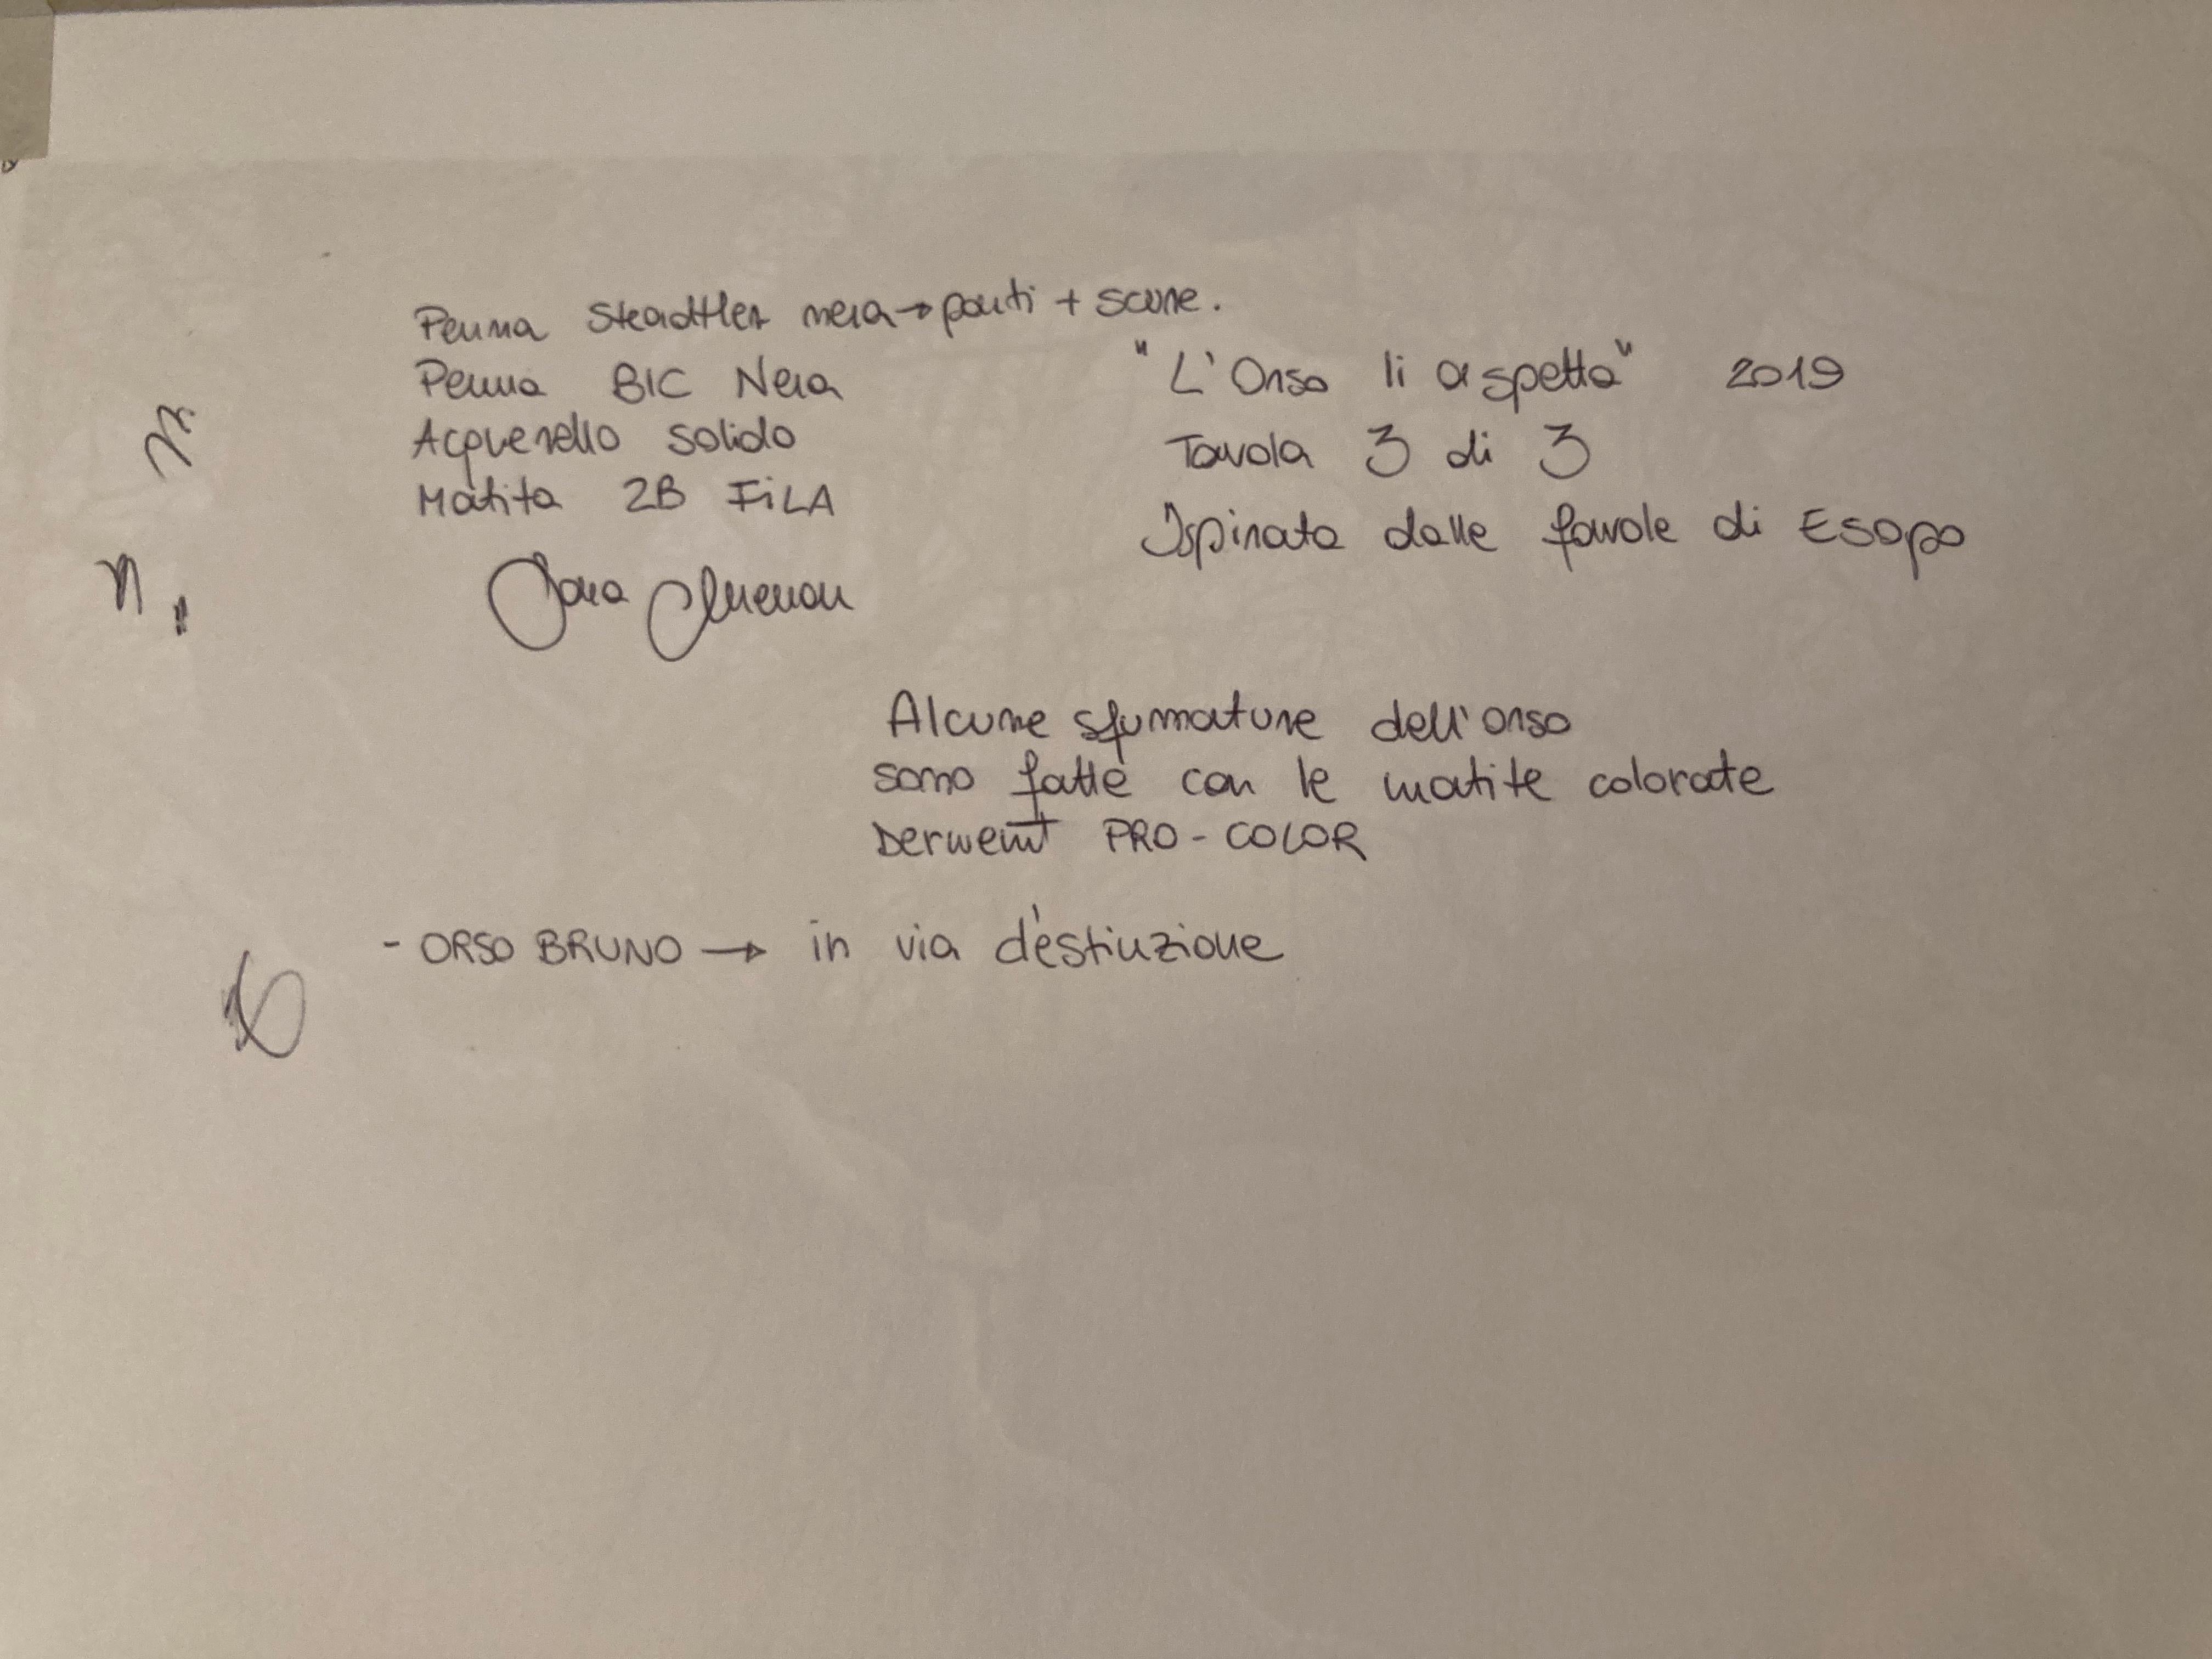 Penna Steadtler nera → parti + scure.
Penna BIC Nera
Acquerello solido
Matita 2B FiLA
"L'Orso li aspetta" 2019
Tavola 3 di 3
Ispirata dalle favole di Esopo
Alcune sfumature dell'orso
sono fatte con le matite colorate
Derwent PRO-COLOR
- ORSO BRUNO → in via d'estinzione